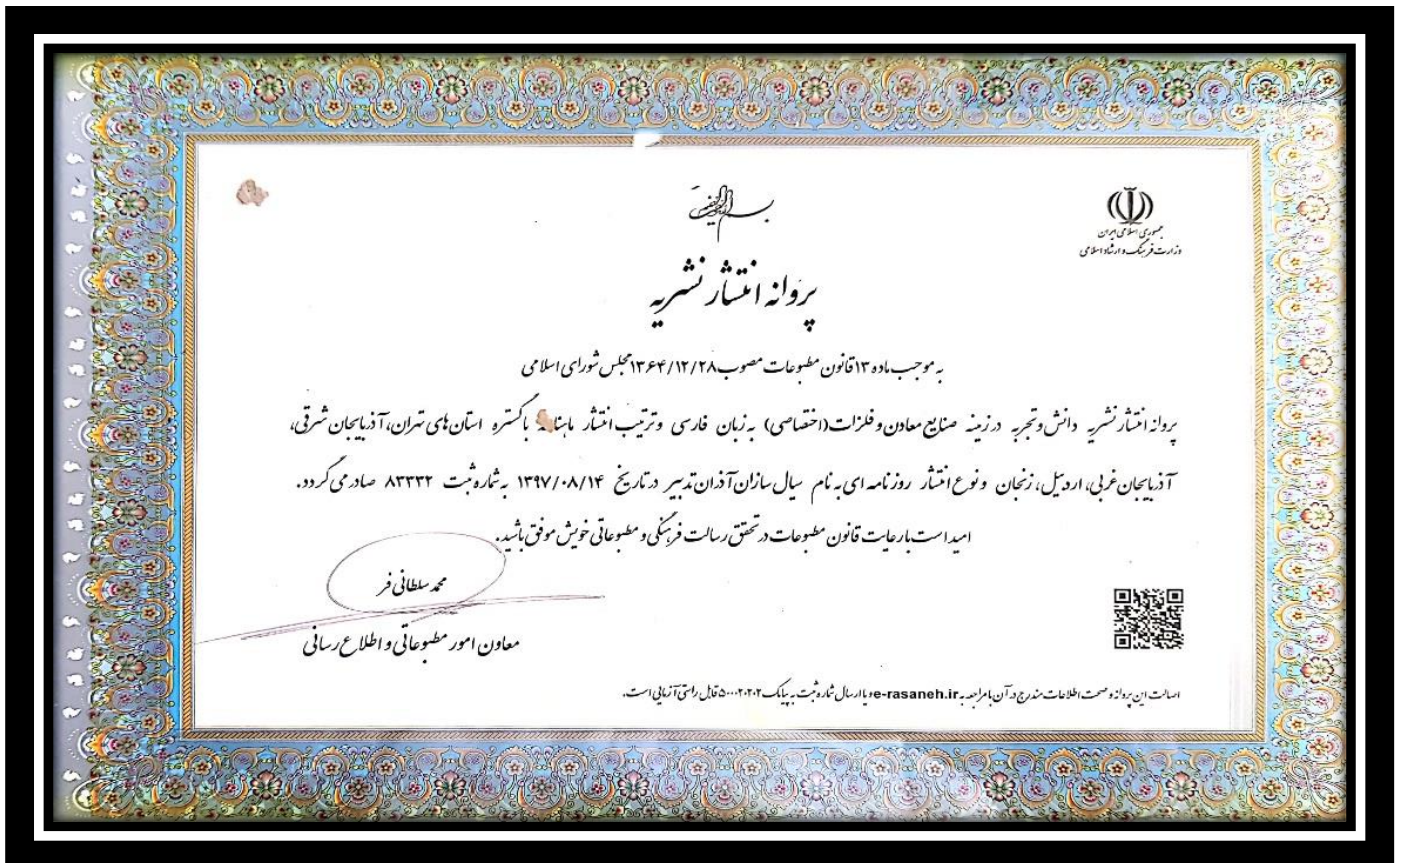 جمهوری اسلامی ایران
وزارت فرهنگ و ارشاد اسلامی
پروانه انتشار نشریه
به موجب ماده ۱۳ قانون مطبوعات مصوب ۱۳۶۴/۱۲/۲۸ مجلس شورای اسلامی
پروانه انتشار نشریه دانش و تجربه در زمینه صنایع معادن و فلزات (اختصاصی) به زبان فارسی و ترتیب انتشار با گستره استان های تهران، آذربایجان شرقی،
آذربایجان غربی، اردبیل، زنجان و نوع انتشار روزنامه ای به نام سیال سازان آذران تدبیر در تاریخ ۱۳۹۷/۰۸/۱۴ به شماره ثبت ۸۳۳۳۲ صادر می گردد.
امید است با رعایت قانون مطبوعات در تحقق رسالت فرهنگی و مطبوعاتی خویش موفق باشید.
محمد سلطانی فر
معاون امور مطبوعاتی و اطلاع رسانی
اصالت این پروانه و صحت اطلاعات مندرج در آن با مراجعه به e-rasaneh.ir و یا ارسال شماره ثبت به پیامک ۵۰۰۰۲۰۲۰۲ قابل راستی آزمایی است.